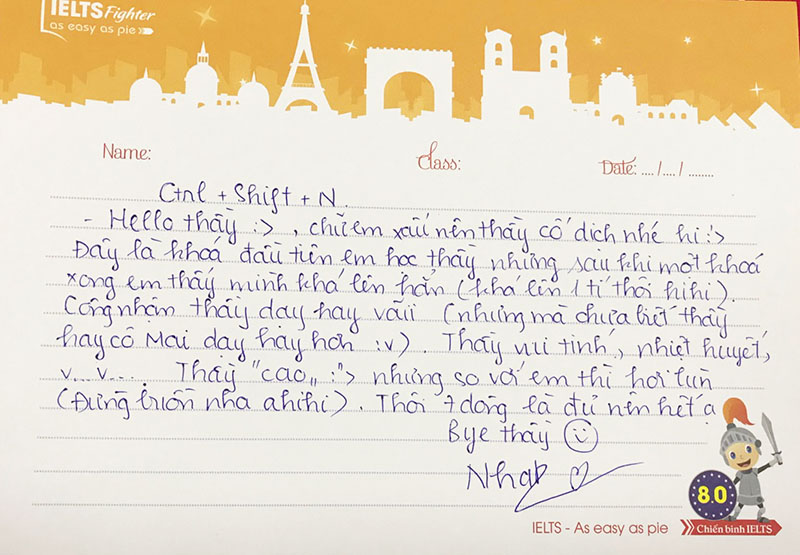 IELTS Fighter
as easy as pie
Name:
Class:
Date: ..../..../ ........
Ctrl + Shift + N.
- Hello thầy :> , chữ em xấu nên thầy cố dịch nhé hi :>
Đây là khoá đầu tiên em học thầy nhưng sau khi một khoá
xong em thấy mình khá lên hẳn (khá lên 1 tí thôi hihi).
Công nhận thầy dạy hay vãii (nhưng mà chưa biết thầy
hay cô Mai dạy hay hơn :v). Thầy vui tính, nhiệt huyết,
v...v.... Thầy "cao" :"> nhưng so với em thì hơi lùn
(Đừng buồn nha ahihi). Thôi 7 dòng là đủ nên hết ạ
Bye thầy
8.0
IELTS - As easy as pie
Chiến binh IELTS